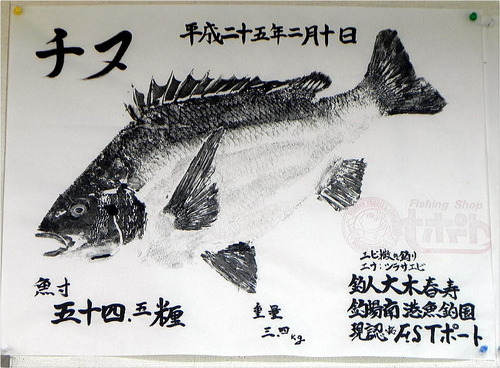 チヌ
平成二十五年二月十日
Fishing Shop
魚寸
五十四.五糎
重量
三.四kg
エビ撒き釣り
エサ:シラサエビ
釣人大木春寿
釣場南港魚釣園
現認者FSTポート